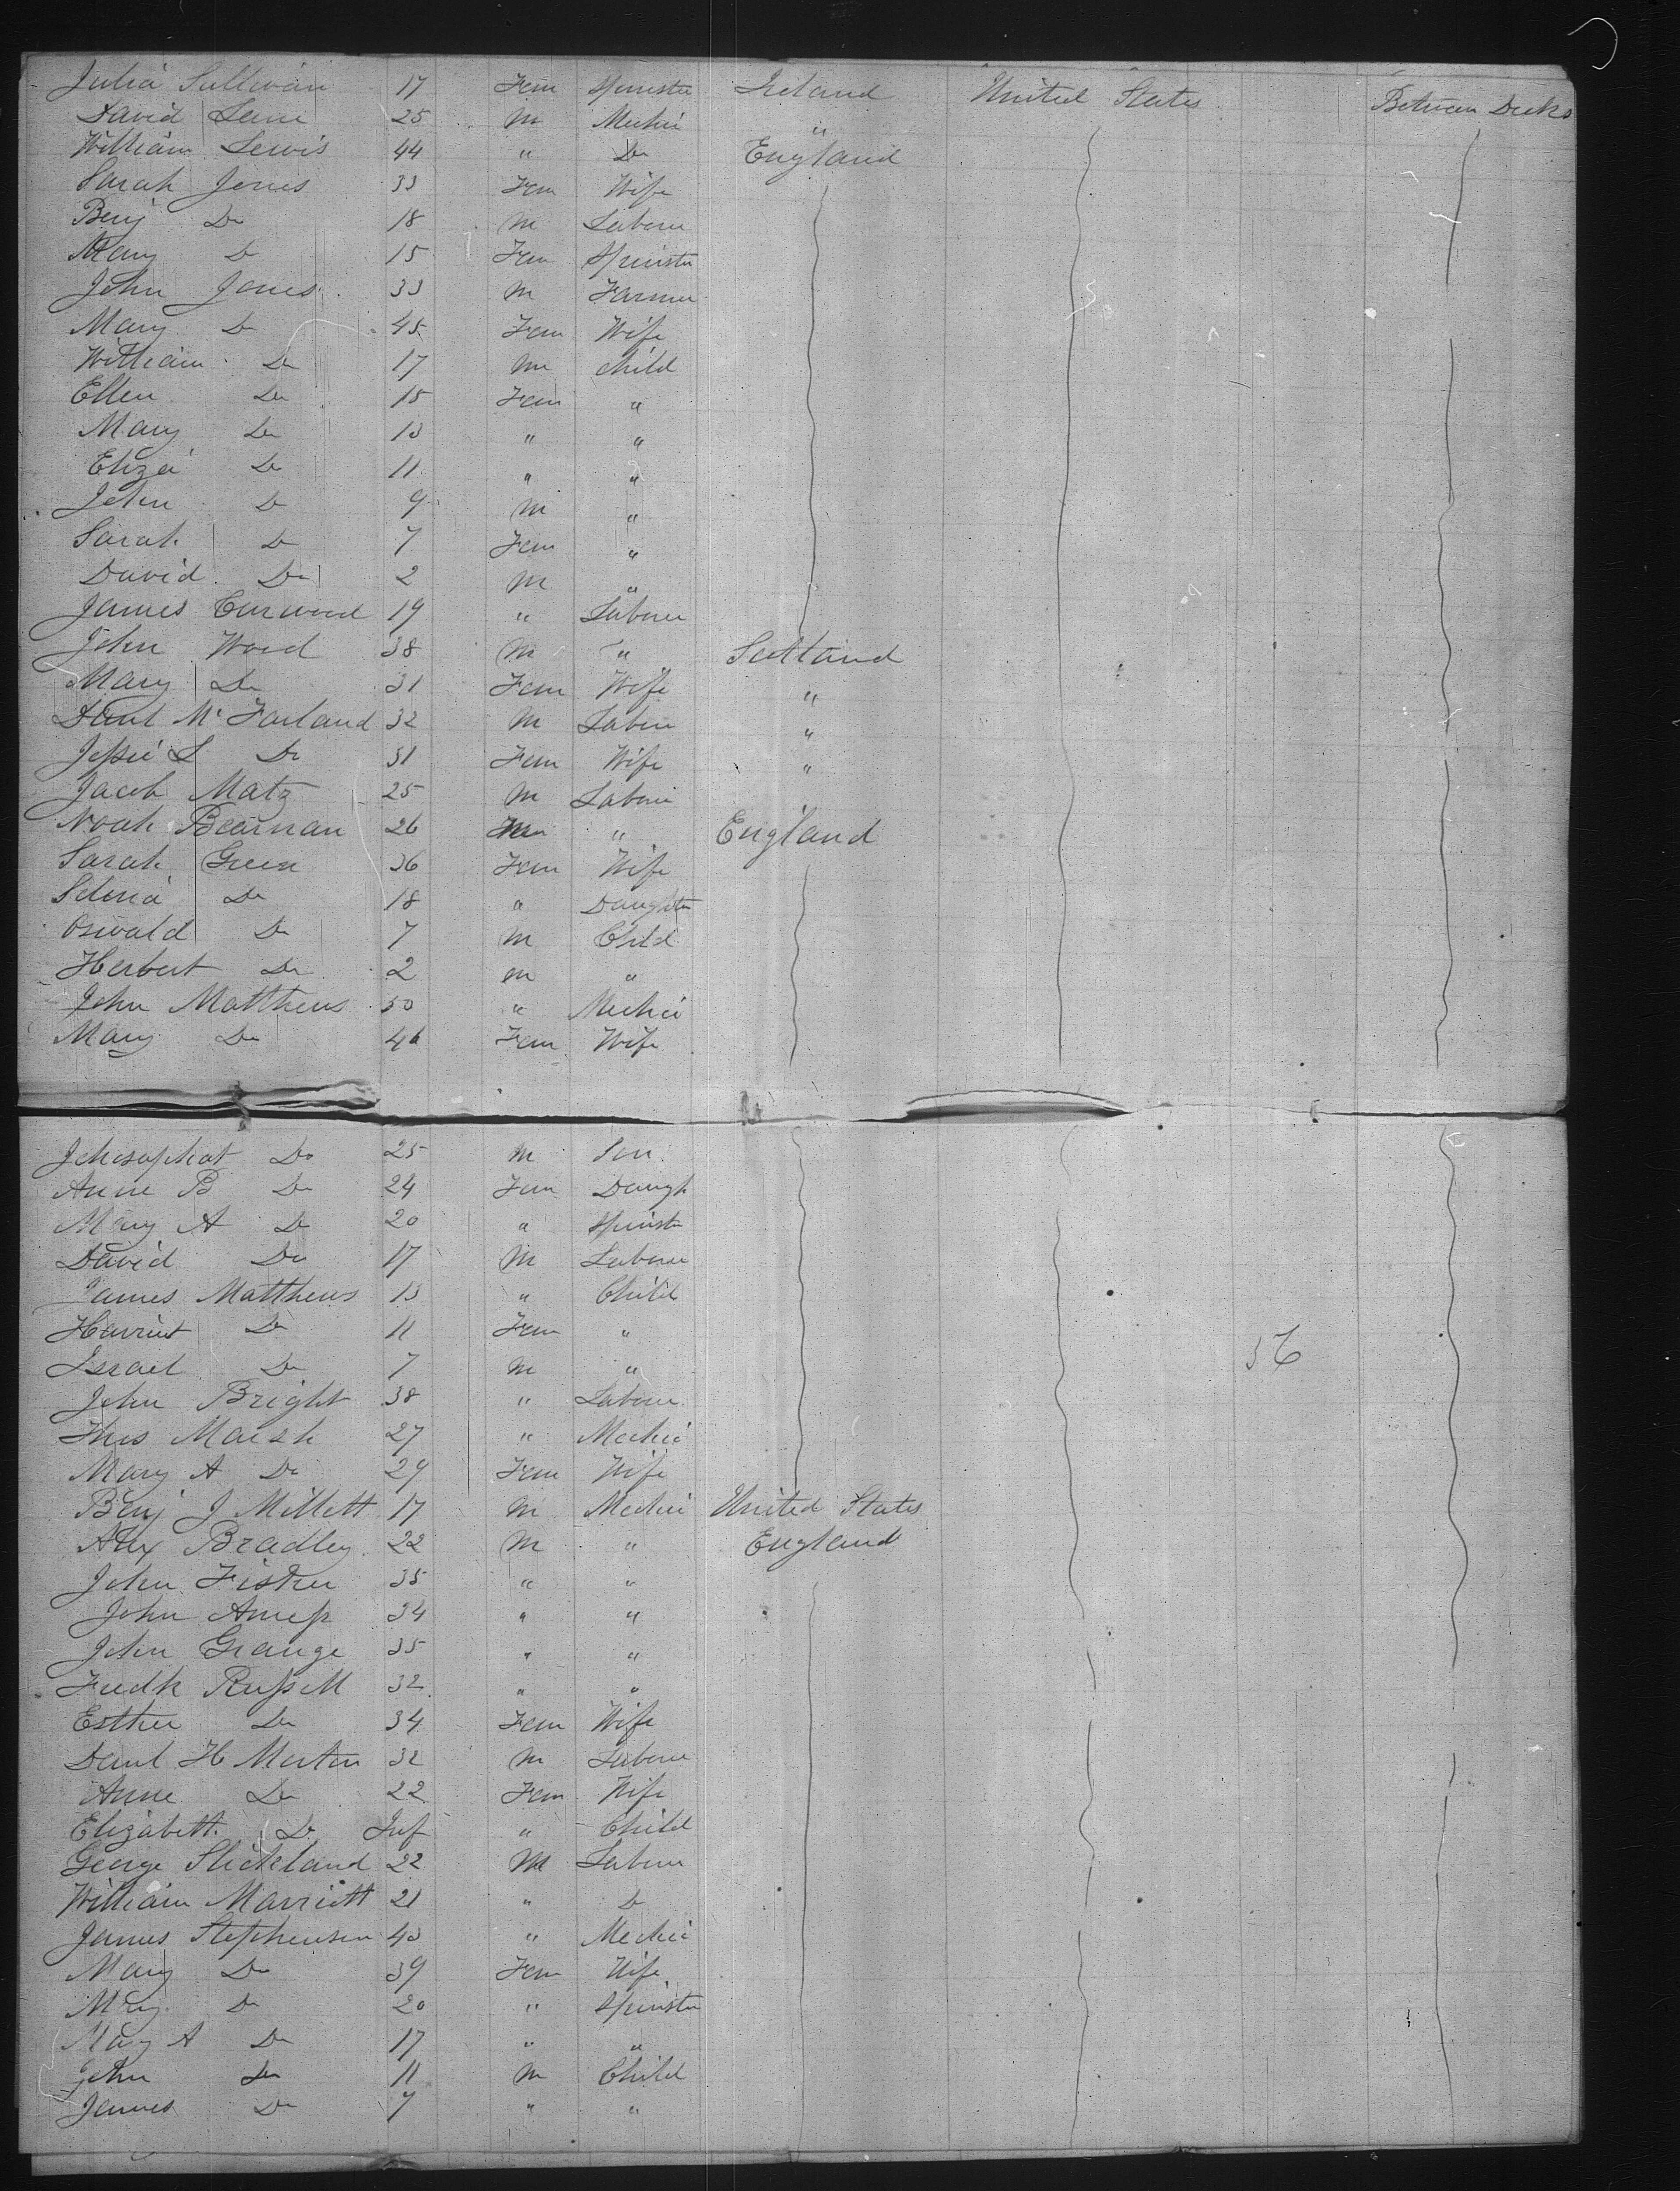 Julia Sullivan 17 Fem Spinster Ireland United States Between Decks
David 25 m Mechc "
William Lewis 44 " Do England
Sarah Jones 33 Fem Wife
Benj Do 18 m Laborer
Mary Do 15 Fem Spinster
John Jones 33 m Farmer
Mary Do 45 Fem Wife
William Do 17 m child
Ellen Do 15 Fem "
Mary Do 13 " "
Eliza Do 11 " "
John Do 9 m "
Sarah Do 7 Fem "
David Do 2 m "
James Curwood 19 " Laborer
John Wood 38 m " Scotland
Mary Do 31 Fem Wife "
Danl McFarland 32 m Laborer "
Jessie S Do 31 Fem Wife "
Jacob Matz 25 m Laborer
Noah Bearman 26 m " England
Sarah Green 36 Fem Wife
Selina Do 18 " Daughter
Oswald Do 7 m Child
Herbert Do 2 m "
John Matthews 50 " Mechc
Mary Do 46 Fem Wife
Jehosophat Do 25 m Son
Anne B Do 24 Fem Daugh
Mary A Do 20 " Spinster
David Do 17 m Laborer
James Matthews 13 " Child
Harriet Do 11 Fem "
Israel Do 7 m " 56
John Bright 38 " Laborer
Thos Marsh 27 " Mechc
Mary A Do 29 Fem Wife
Benj J Millett 17 m Mechc United States
Alex Bradley 22 m " England
John Fisher 35 " "
John 34 " "
John Grange 35 " "
Fredk Russell 32 " "
Esther Do 34 Fem Wife
Danl H Martin 32 m Laborer
Anne Do 22 Fem Wife
Elizabeth Do Inf " Child
George Stickland 22 m Laborer
William Marriott 21 " Do
James Stephenson 43 " Mechc
Mary Do 39 Fem Wife
Do 20 " Spinster
Mary A Do 17 " "
John Do 11 m Child
James Do 7 " "